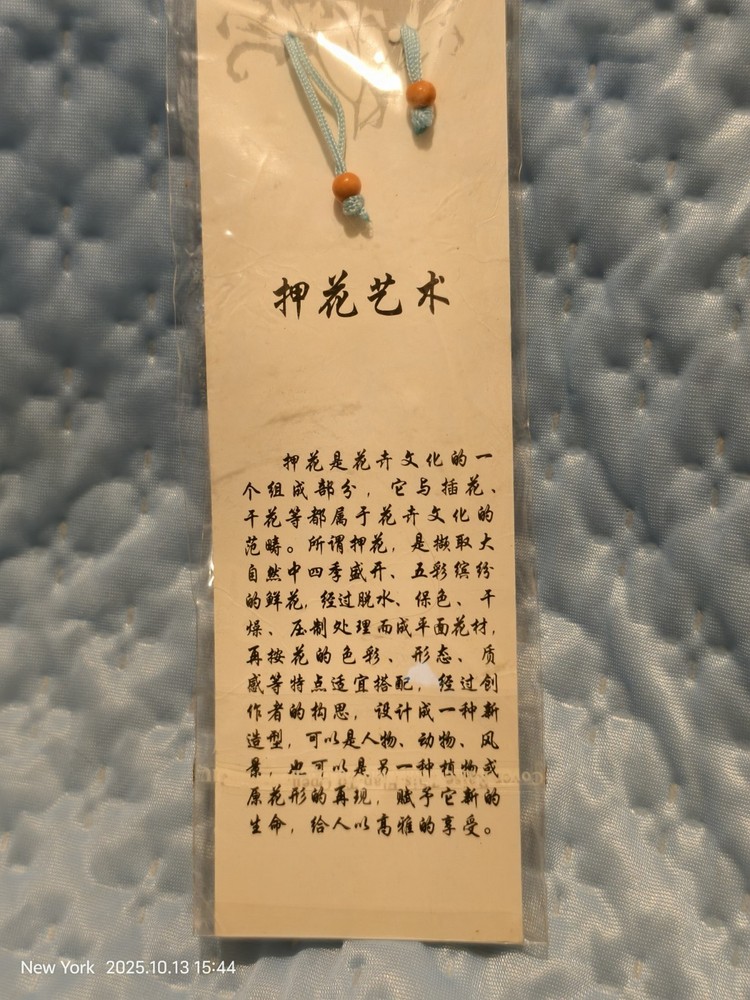 押花艺术
押花是花卉文化的一
个组成部分，它与插花、
干花等都属于花卉文化的
范畴。所谓押花，是撷取大
自然中四季盛开、五彩缤纷
的鲜花，经过脱水、保色、干
燥、压制处理而成平面花材，
再按花的色彩、形态、质
感等特点适宜搭配，经过创
作者的构思，设计成一种新
造型，可以是人物、动物、风
景，也可以是另一种植物或
原花形的再现，赋予它新的
生命，给人以高雅的享受。
New York 2025.10.13 15:44